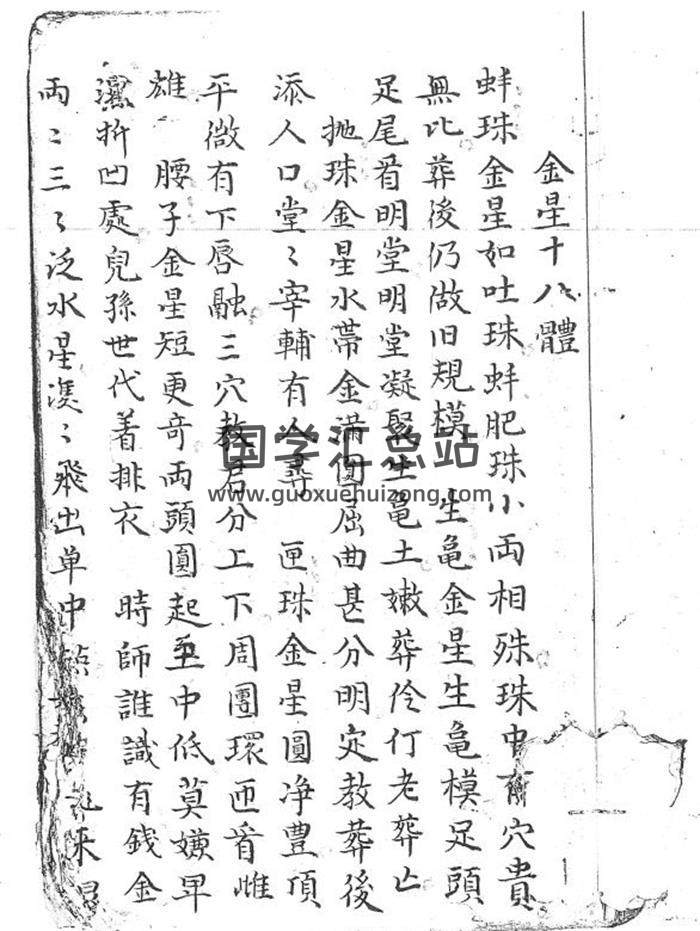 金星十八體
蚌珠金星如吐珠蚌肥珠小両相殊珠中有穴貴
無比葬後仍做旧規模 生亀金星生亀模足頭
足尾看明堂明堂凝聚生亀土嫩葬伶仃老葬亡
抛珠金星水帯金滿圓屈曲甚分明定教葬後
添人口堂〻宰輔有人尋 匣珠金星圓净豊頂
平微有下唇融三穴教君分上下周圑環匝看雌
雄 腰子金星短更奇両頭圓起至中低莫嫌旱
濕折凹處兒孫世代着排衣 時師誰識有錢金
両〻三〻泛水星漠〻飛出单中
国学汇总站
www.guoxuehuizong.com